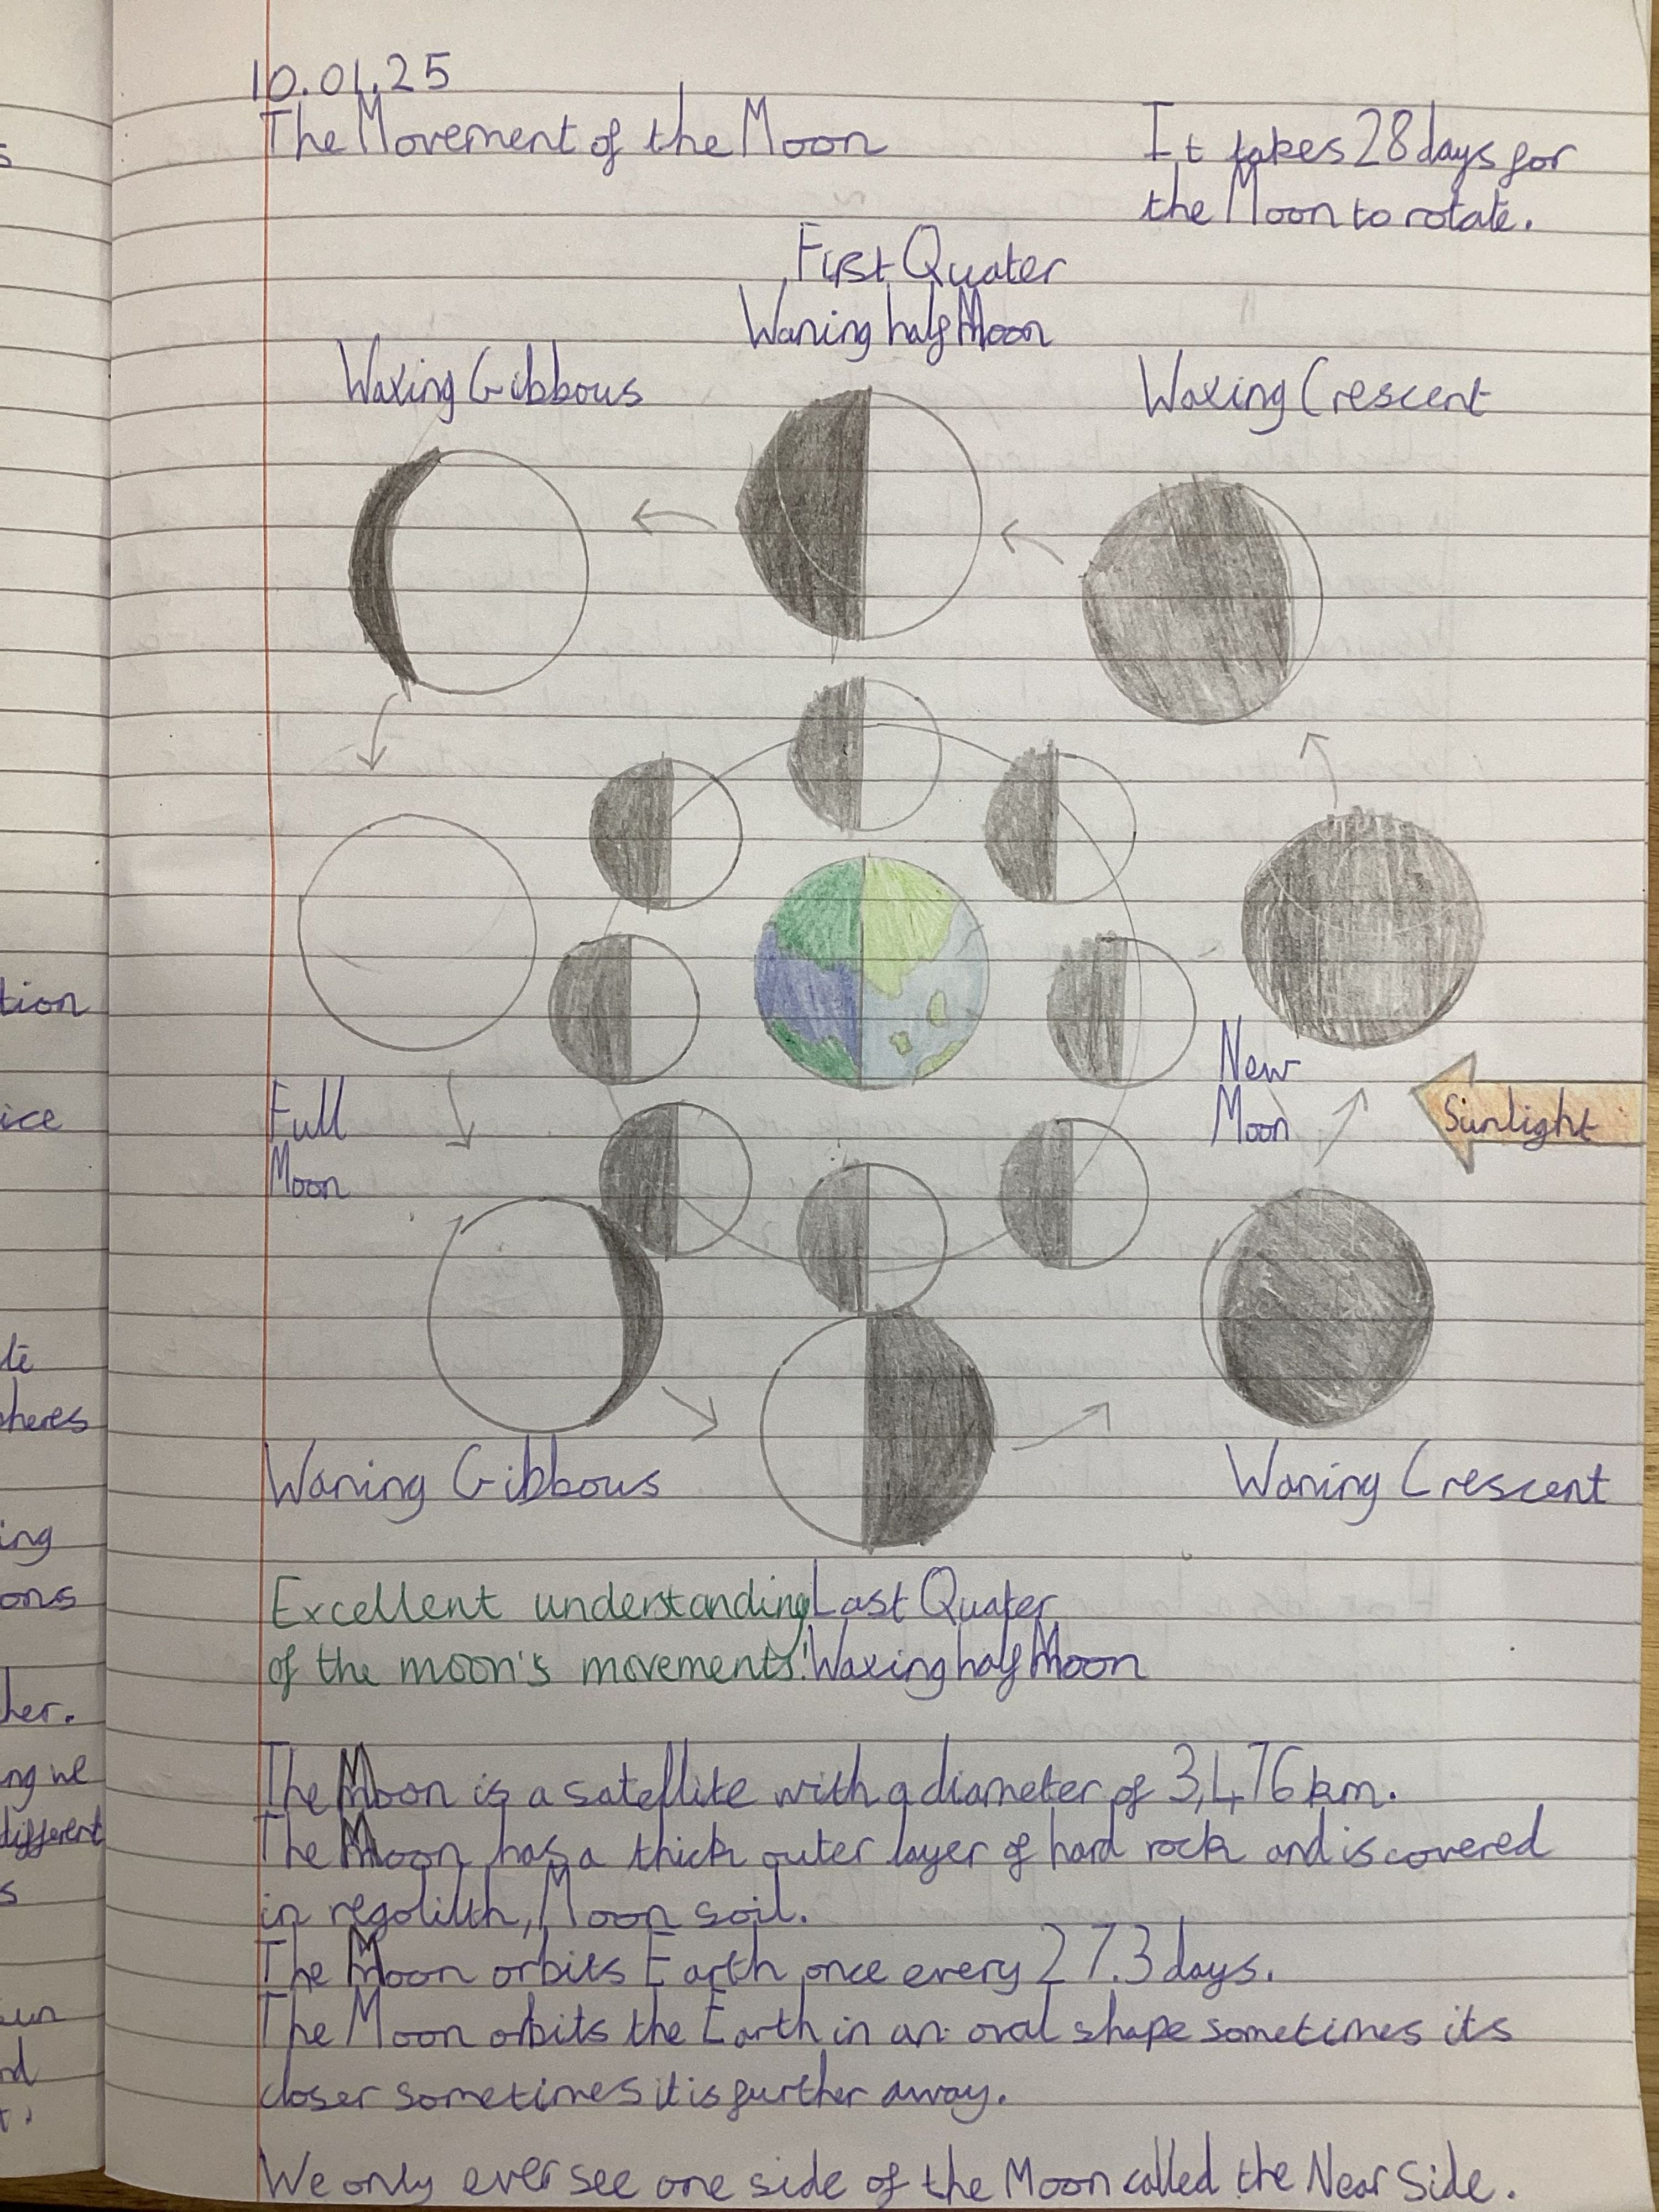 10.01.25
The Movement of the Moon
It takes 28 days for
the Moon to rotate.
First Quater
Waning half Moon
Waxing Gibbous
Waxing Crescent
New
Moon
Sunlight
Full
Moon
Waning Gibbous
Waning Crescent
Excellent understanding
of the moon's movements!
Last Quater
Waxing half Moon
The Moon is a satellite with a diameter of 3,476 km.
The Moon has a thick outer layer of hard rock and is covered
in regolith, Moon soil.
The Moon orbits Earth once every 27.3 days.
The Moon orbits the Earth in an oval shape sometimes its
closer sometimes it is further away.
We only ever see one side of the Moon called the Near Side.
s
tion
ice
te
pheres
ing
ons
her.
ng we
different
s
sun
nd